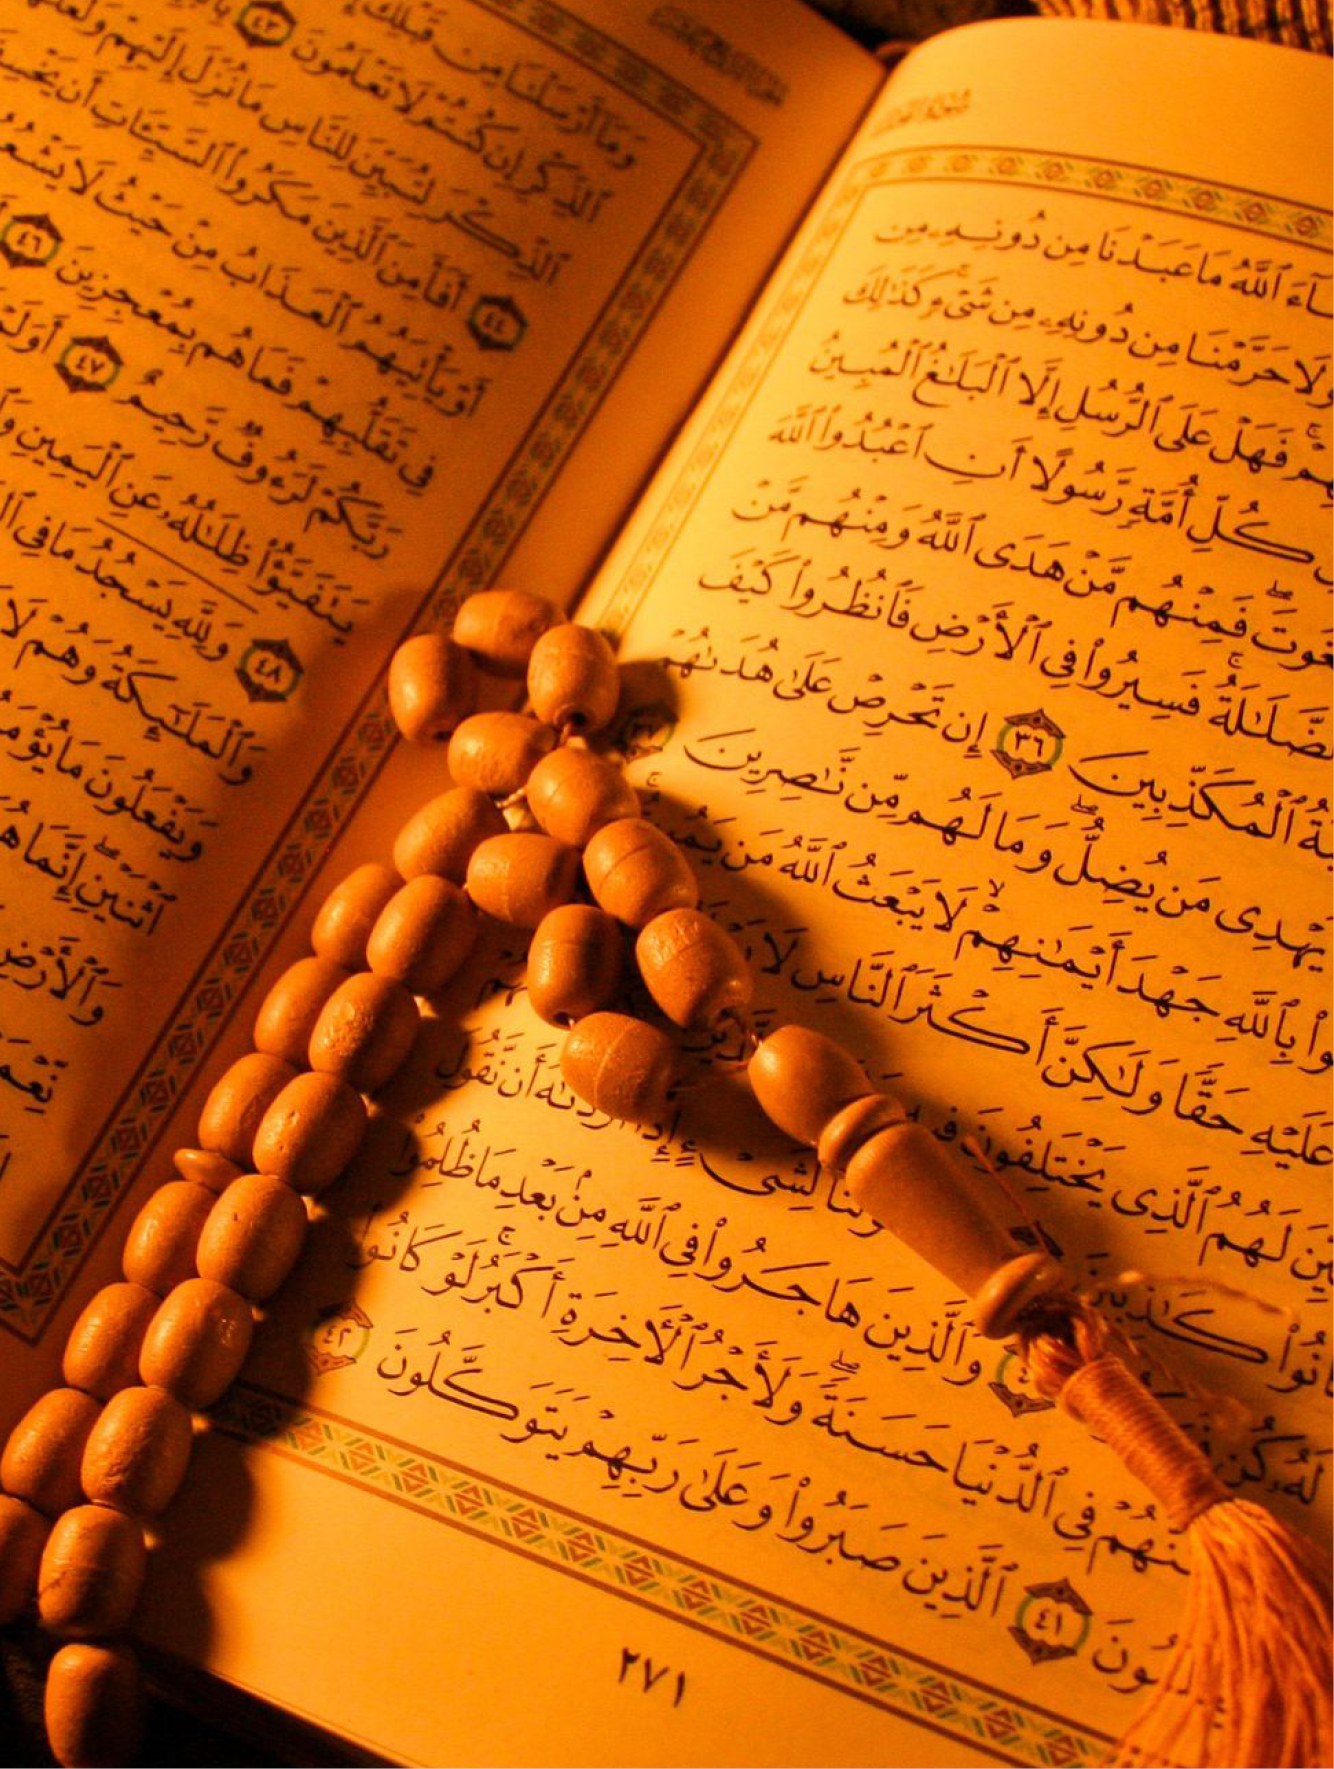 ٱللَّهُ مَا عَبَدْنَا مِن دُونِهِۦ مِن
وَلَا حَرَّمْنَا مِن دُونِهِۦ مِن شَىْءٍ ۚ كَذَٰلِكَ
فَهَلْ عَلَى ٱلرُّسُلِ إِلَّا ٱلْبَلَٰغُ ٱلْمُبِينُ
كُلِّ أُمَّةٍ رَّسُولًا أَنِ ٱعْبُدُوا۟ ٱللَّهَ
فَمِنْهُم مَّنْ هَدَى ٱللَّهُ وَمِنْهُم مَّنْ
ٱلضَّلَٰلَةُ ۚ فَسِيرُوا۟ فِى ٱلْأَرْضِ فَٱنظُرُوا۟ كَيْفَ
ٱلْمُكَذِّبِينَ ٣٦ إِن تَحْرِصْ عَلَىٰ هُدَىٰهُمْ
يَهْدِى مَن يُضِلُّ ۖ وَمَا لَهُم مِّن نَّٰصِرِينَ
بِٱللَّهِ جَهْدَ أَيْمَٰنِهِمْ ۙ لَا يَبْعَثُ ٱللَّهُ مَن
عَلَيْهِ حَقًّا وَلَٰكِنَّ أَكْثَرَ ٱلنَّاسِ لَا
لَهُمُ ٱلَّذِى يَخْتَلِفُونَ
كَٰذِبِينَ لِشَىْءٍ إِذَآ أَرَدْنَٰهُ أَن نَّقُولَ
لَهُۥ كُن وَٱلَّذِينَ هَاجَرُوا۟ فِى ٱللَّهِ مِنۢ بَعْدِ مَا ظُلِمُوا۟
فِى ٱلدُّنْيَا حَسَنَةً ۖ وَلَأَجْرُ ٱلْأَخِرَةِ أَكْبَرُ ۚ لَوْ كَانُوا۟
٤١ ٱلَّذِينَ صَبَرُوا۟ وَعَلَىٰ رَبِّهِمْ يَتَوَكَّلُونَ ٤٢
٢٧١
وَمَآ أَرْسَلْنَا مِن قَبْلِكَ
ٱلذِّكْرِ إِن كُنتُمْ لَا تَعْلَمُونَ ٤٣
ٱلذِّكْرَ لِتُبَيِّنَ لِلنَّاسِ مَا نُزِّلَ إِلَيْهِمْ
٤٤ أَفَأَمِنَ ٱلَّذِينَ مَكَرُوا۟ ٱلسَّيِّـَٔاتِ أَن
أَوْ يَأْتِيَهُمُ ٱلْعَذَابُ مِنْ حَيْثُ لَا
فِى تَقَلُّبِهِمْ فَمَا هُم بِمُعْجِزِينَ ٤٦
رَبَّكُمْ لَرَءُوفٌ رَّحِيمٌ ٤٧
يَتَفَيَّؤُا۟ ظِلَٰلُهُۥ عَنِ ٱلْيَمِينِ
٤٨ وَلِلَّهِ يَسْجُدُ مَا فِى
وَٱلْمَلَٰٓئِكَةُ وَهُمْ لَا
وَيَفْعَلُونَ مَا
ٱثْنَيْنِ ۖ إِنَّمَا
وَٱلْأَرْضِ